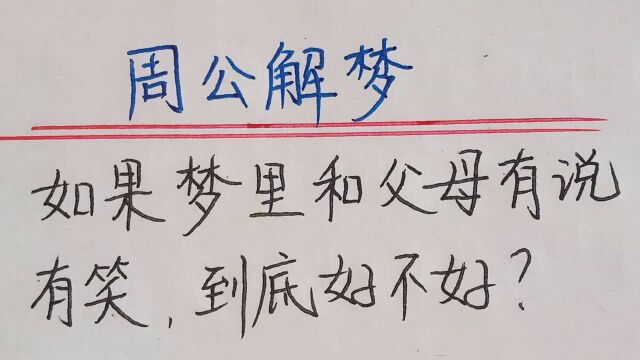 周公解梦
如果梦里和父母有说
有笑,到底好不好?